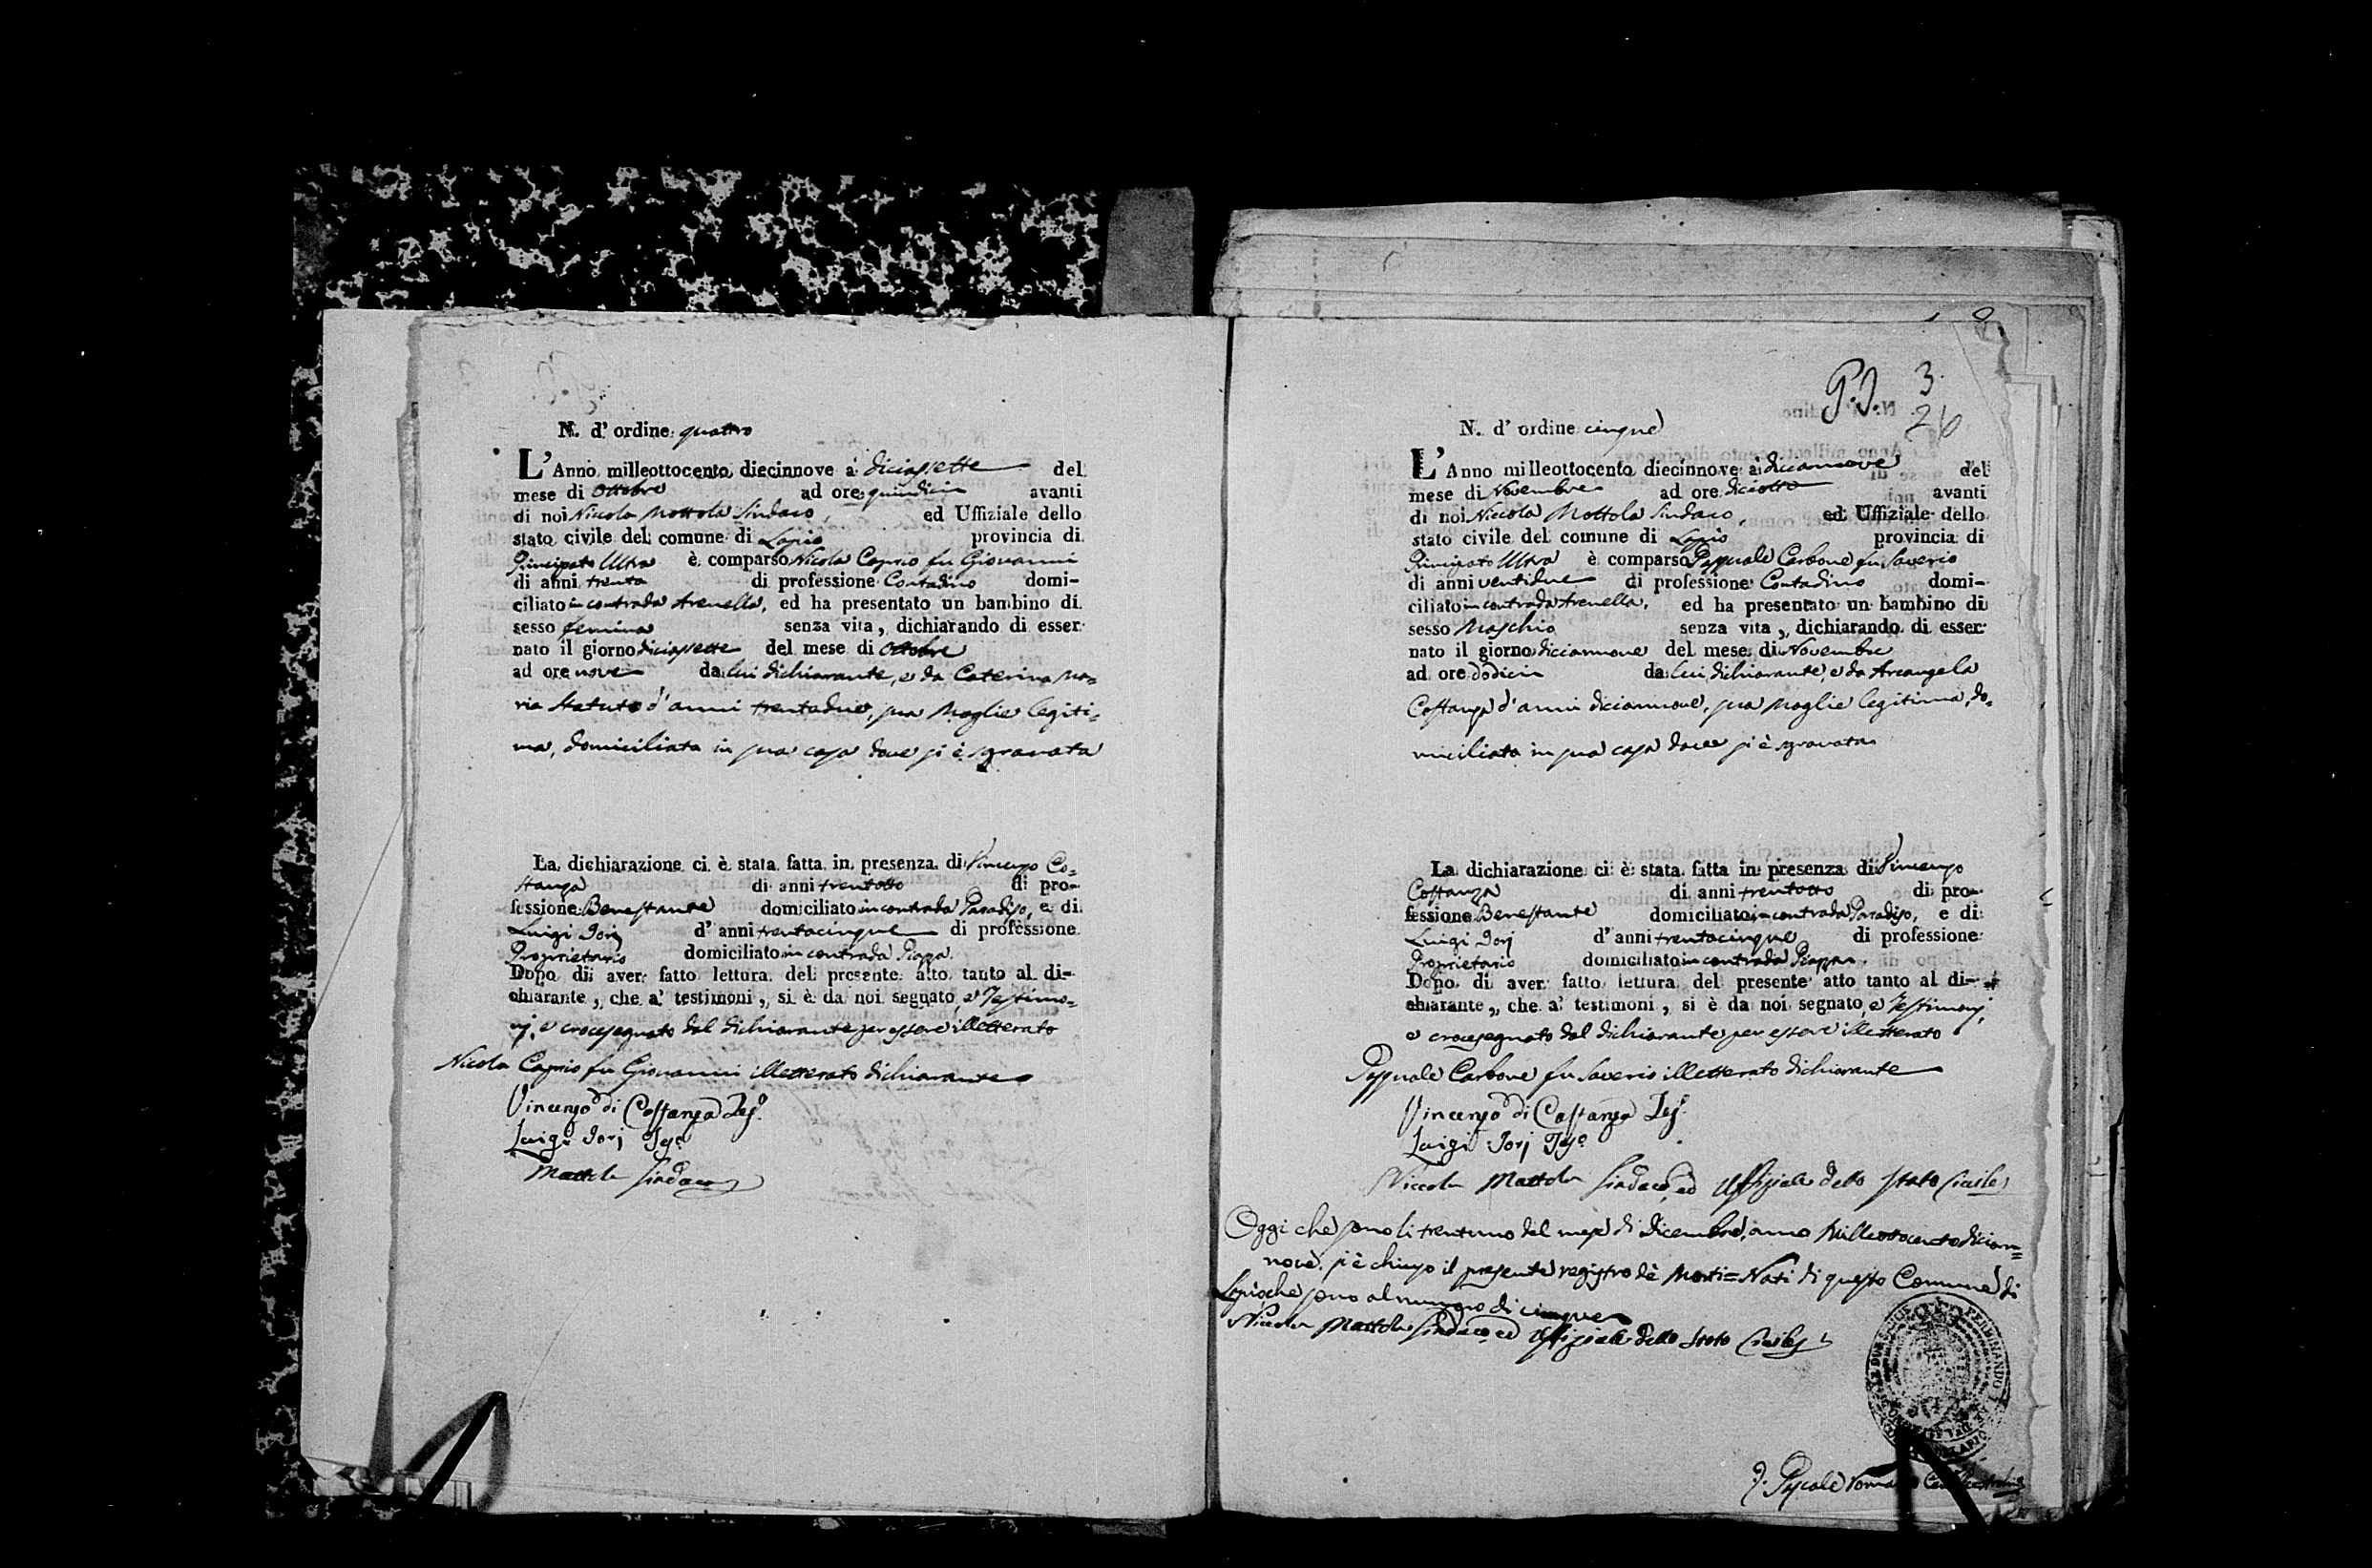 N. d' ordine quattro
L'Anno milleottocento diecinnove a' diciassette del
mese di Ottobre ad ore quindici avanti
di noi Niccola Mottola Sindaco, ed Uffiziale dello
stato civile del comune di Lapio provincia di
Principato Ultra è comparso Nicola Caprio fu Giovanni
di anni trenta di professione Contadino domi-
ciliato in contrada Arenella, ed ha presentato un bambino di
sesso femina senza vita, dichiarando di esser
nato il giorno diciassette del mese di Ottobre
ad ore nove da lui dichiarante, e da Caterina Ma=
ria Statuto d'anni trentadue, sua Moglie legiti=
ma, domiciliata in sua casa dove si è sgravata
La dichiarazione ci è stata fatta in presenza di Vincenzo Co=
stanza di anni trentotto di pro-
fessione Benestante domiciliato in contrada Paradiso, e di
Luigi Iorj d' anni trentacinque di professione
Proprietario domiciliato in contrada Piazza.
Dopo di aver fatto lettura del presente atto tanto al di-
chiarante, che a' testimoni, si è da noi segnato, e Testimo=
nj, e crocesegnato dal dichiarante per essere illetterato
Nicola Caprio fu Giovanni illetterato dichiarante
Vincenzo di Costanza Tes.º
Luigi Iorj Tes.º
Mottola Sindaco
P.I. 3
26
N. d' ordine cinque
L'Anno milleottocento diecinnove a' diciannove del
mese di Novembre ad ore diciotto avanti
di noi Niccola Mottola Sindaco, ed Uffiziale dello
stato civile del comune di Lapio provincia di
Principato Ultra è comparso Pasquale Carbone fu Saverio
di anni ventidue di professione Contadino domi-
ciliato in contrada Arenella, ed ha presentato un bambino di
sesso Maschio senza vita, dichiarando di esser
nato il giorno diciannove del mese di Novembre
ad ore dodici da lui dichiarante, e da Arcangela
Costanza d'anni diciannove, sua Moglie legitima, do=
miciliata in sua casa dove si è sgravata
La dichiarazione ci è stata fatta in presenza di Vincenzo
Costanza di anni trentotto di pro-
fessione Benestante domiciliato in contrada Paradiso, e di
Luigi Iorj d' anni trentacinque di professione
Proprietario domiciliato in contrada Piazza.
Dopo di aver fatto lettura del presente atto tanto al di-
chiarante, che a' testimoni, si è da noi segnato, e Testimonj,
e crocesegnato dal dichiarante per essere illetterato
Pasquale Carbone fu Saverio illetterato dichiarante
Vincenzo di Costanza Tes.º
Luigi Iorj Tes.º
Niccola Mottola Sindaco, ed Uffiziale dello Stato Civile
Oggi che sono li trentuno del mese di Dicembre, anno Milleottocento dician=
nove, si è chiuso il presente registro de' Morti=Nati di questo Comune di
Lapio che sono al numero di cinque
Niccola Mottola Sindaco, ed Uffiziale dello Stato Civile
FERDINANDO I